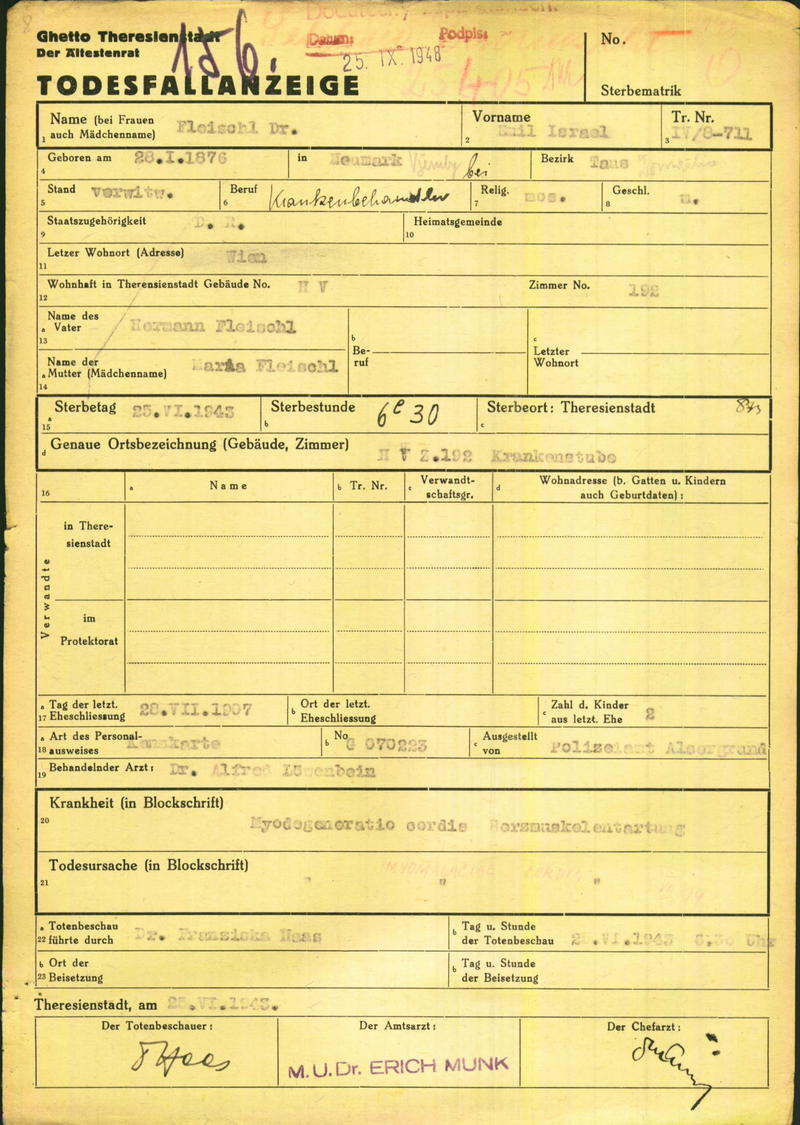 Ghetto Theresienstadt
Der Ältestenrat
156.
Datum:
Podpis:
25. IX. 1948
No.
TODESFALLANZEIGE
Sterbematrik
Name (bei Frauen auch Mädchenname) Fleischl Dr.
1
Vorname Emil Israel
2
Tr. Nr. IV/8-711
3
Geboren am 28.I.1876
4
in Neumark bei
Bezirk Taus
Stand Verwitw.
5
Beruf Krankenbehandler
6
Relig. mos.
7
Geschl. m.
8
Staatszugehörigkeit D. R.
9
Heimatsgemeinde
10
Letzer Wohnort (Adresse) Wien
11
Wohnhaft in Theresienstadt Gebäude No. H V
12
Zimmer No. 192
Name des
a Vater Hermann Fleischl
13
Name der
a Mutter (Mädchenname) Maria Fleischl
14
b
Be-
ruf
c
Letzter
Wohnort
Sterbetag 25.VI.1943
a
15
Sterbestunde 6e 30
b
Sterbeort: Theresienstadt
c
Genaue Ortsbezeichnung (Gebäude, Zimmer)
d H V Z.192 Krankenstube
16
a Name
b Tr. Nr.
c Verwandt-
schaftsgr.
d Wohnadresse (b. Gatten u. Kindern
auch Geburtdaten):
Verwandte
in There-
sienstadt
im
Protektorat
a Tag der letzt.
17 Eheschliessung 28.VII.1907
b Ort der letzt.
Eheschliessung
c Zahl d. Kinder
aus letzt. Ehe 2
a Art des Personal-
18 ausweises Kennkarte
b No. G 070223
c Ausgestellt
von Polizeiamt Alsergrund
Behandelnder Arzt: Dr. Alfred Löwenbein
19
Krankheit (in Blockschrift)
20
Myodegeneratio cordis Herzmuskelentartung
Todesursache (in Blockschrift)
21
" " "
a Totenbeschau
22 führte durch Dr. Franziska Haas
b Tag u. Stunde
der Totenbeschau
b Ort der
23 Beisetzung
b Tag u. Stunde
der Beisetzung
Theresienstadt, am 25.VI.1943.
Der Totenbeschauer:
Haas
Der Amtsarzt:
M.U.Dr. ERICH MUNK
Der Chefarzt: